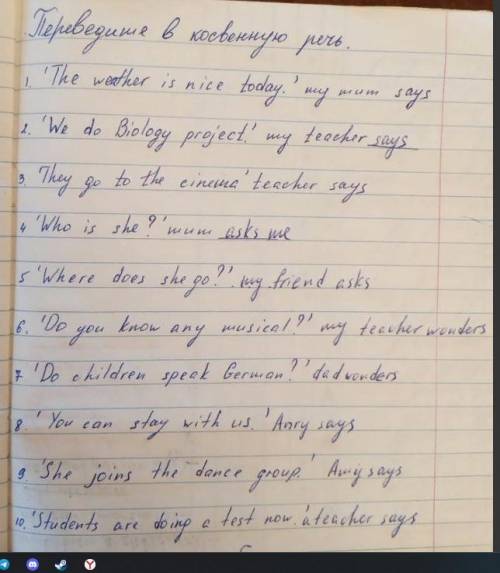 Переведите в косвенную речь.
1. 'The weather is nice today.' my mum says
2. 'We do Biology project.' my teacher says
3. 'They go to the cinema' teacher says
4 'Who is she?' mum asks me
5 'Where does she go?' my friend asks
6. 'Do you know any musical?' my teacher wonders
7 'Do children speak German?' dad wonders
8. 'You can stay with us.' says
9. 'She joins the dance group.' Amy says
10. 'Students are doing a test now.' a teacher says